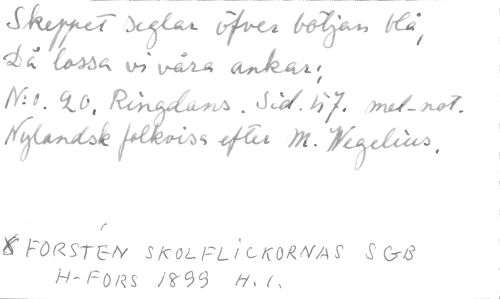 Skeppet seglar öfver böljan blå,
Då lossa vi våra ankar;
N:o. 20. Ringdans. Sid. 47. mel-not.
Nylandsk folkvisa efter M. Wegelius.
FORSTÉN SKOLFLICKORNAS SGB
H-FORS 1899 H.1.